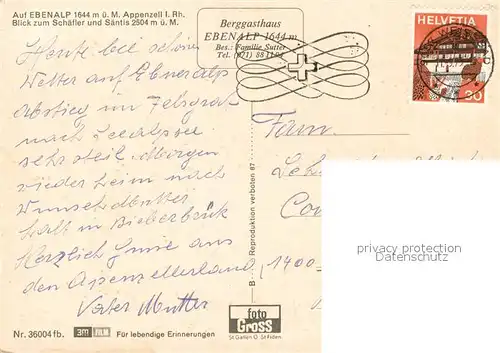 Auf EBENALP 1644 m ü. M. Appenzell I. Rh.
Blick zum Schäfler und Säntis 2504 m ü. M.
Berggasthaus
EBENALP 1644 m
Bes.: Familie Sutter
Tel. (071) 88 11 94
HELVETIA
30
Heute bei schönem
Wetter auf Ebenalp
Abstieg im Felsgrat
nach Seealpsee
sehr steil. Morgen
wieder heim nach
Wunsch Mutter
halt in Bieberbrück
Herzlich Grüsse aus
den Appenzellerland
Vater Mutter
Fam.
1400
B Reproduktion verboten 67
privacy protection
Ansichtskartenversand
Nr. 36004 fb.
3m FILM
Für lebendige Erinnerungen
foto
Gross
St Gallen O St Fiden